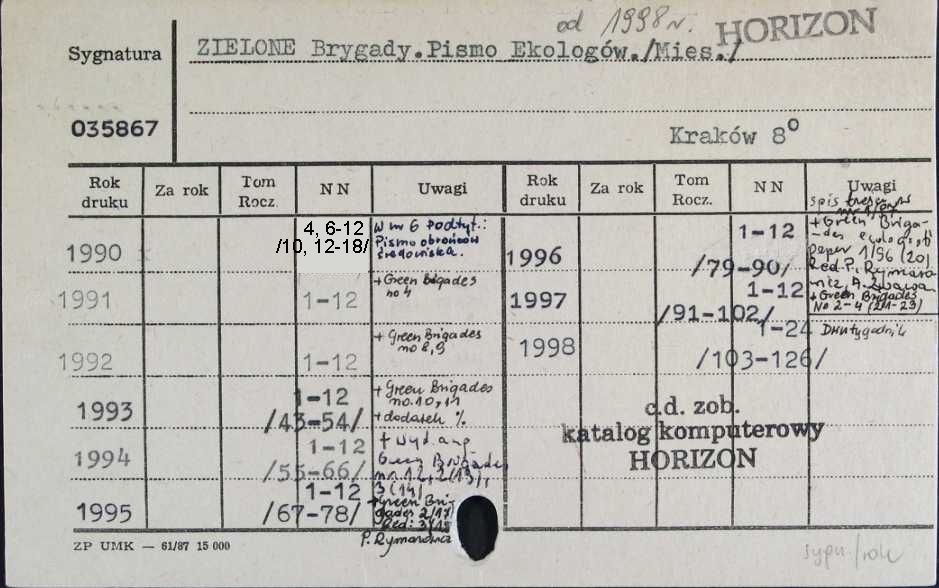 od 1998 r. HORIZON
Sygnatura
ZIELONE Brygady.Pismo Ekologów./Mies./
035867
Kraków 8°
Rok druku Za rok Tom Rocz. NN Uwagi Rok druku Za rok Tom Rocz. NN Uwagi
1990 4, 6-12
/10, 12-18/
W nr 6 podtyt.:
Pismo obrońców
środowiska.
1991 1-12
+ Green Brigades
no 4
1992 1-12
+ Green Brigades
no 8,9
1993 1-12
/43-54/
+ Green Brigades
no. 10, 11
+ dodatek %
1994 1-12
/55-66/
+ wyd ang
Green Brigades
nr 12, 2(13),
3(14)
1995 1-12
/67-78/
+ Green Bri-
gades 2/17
Red: 3/18
P. Rymarowicz
1996 1-12
/79-90/
spis treści
nr 1/87
+ Green Briga-
des
paper 1/96 (20)
Red. P. Rymaro
wicz, A. Żwawa
1997 1-12
/91-102/
+ Green Brigades
No 2-4 (21-23)
1998 1-24
/103-126/
Dwutygodnik
c.d. zob.
katalog komputerowy
HORIZON
ZP UMK — 61/87 15 000
sygn/rok